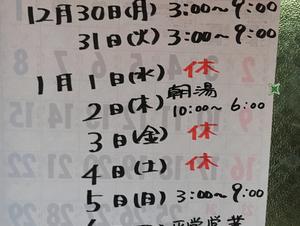 12月30日(月) 3:00~9:00
31日(火) 3:00~9:00
1月1日(水) 休
2日(木) 朝湯 10:00~6:00
3日(金) 休
4日(土) 休
5日(日) 3:00~9:00